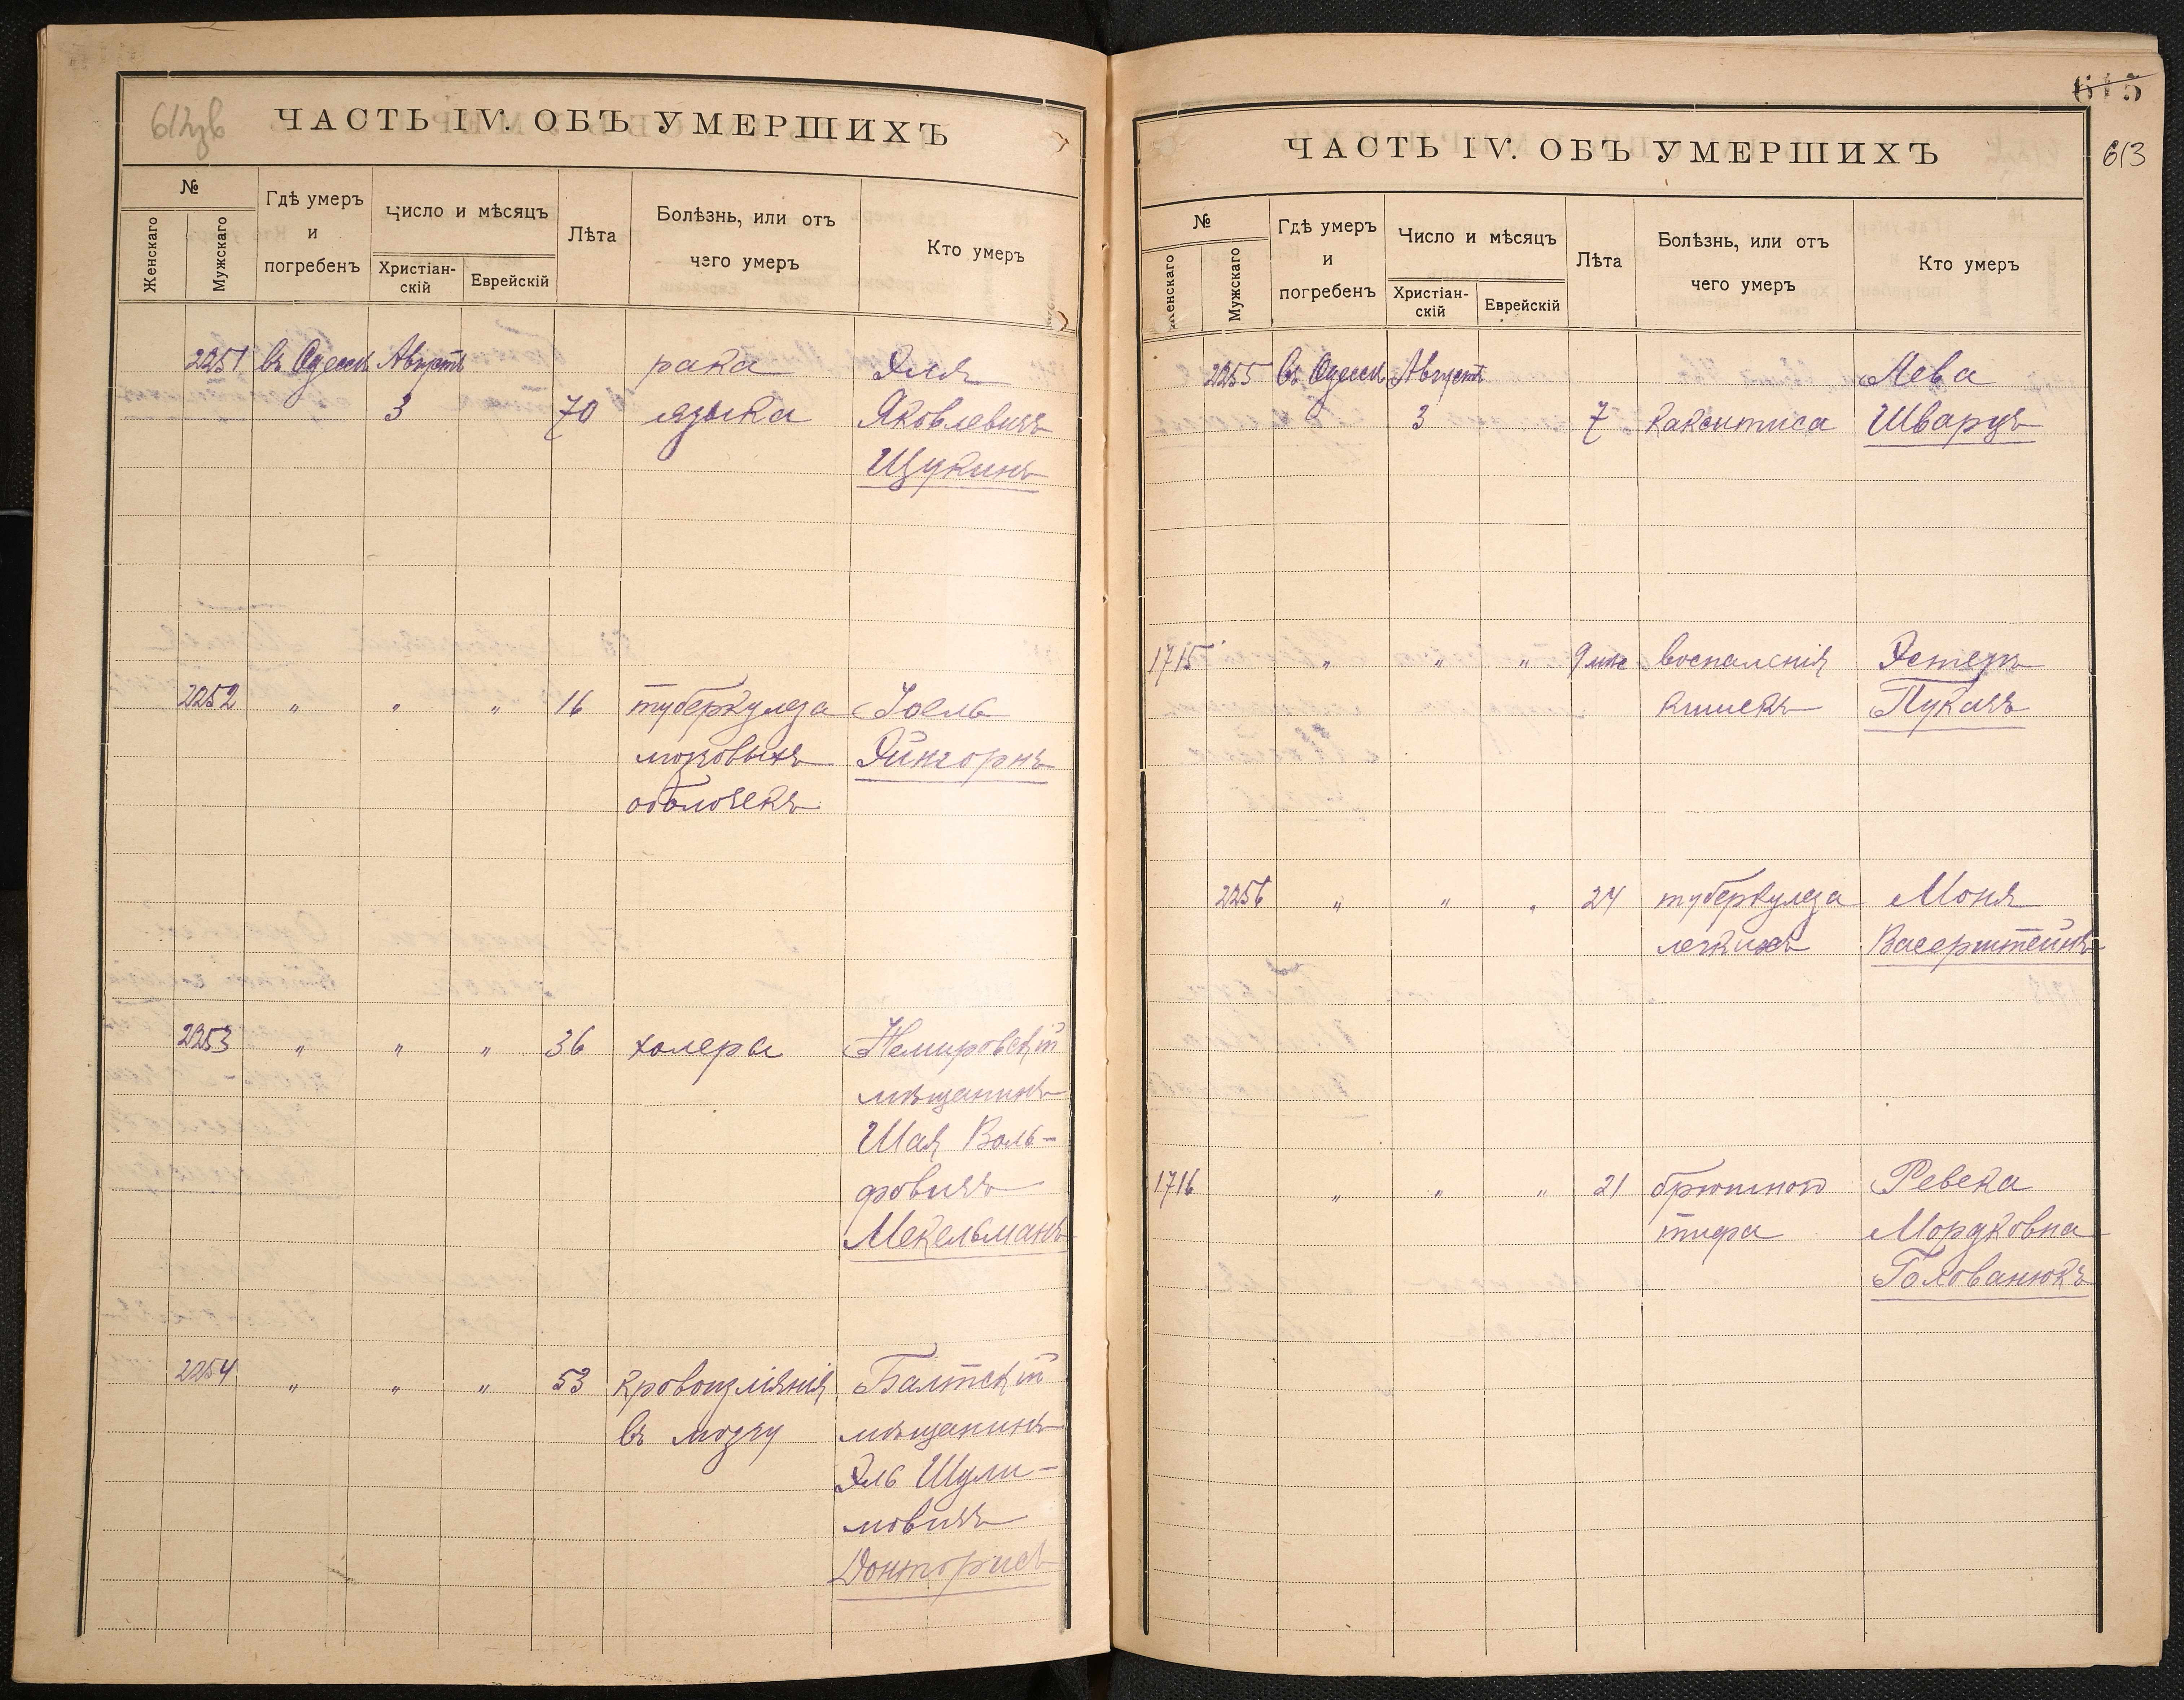 612зв
ЧАСТЬ IV. ОБЪ УМЕРШИХЪ
№
Женскаго
Мужскаго
Гдѣ умеръ
и
погребенъ
Число и мѣсяцъ
Христіан-
скій
Еврейскій
Лѣта
Болѣзнь, или отъ
чего умеръ
Кто умеръ
2251 въ Одессѣ Августъ рака Эля
3 70 языка Яковлевичъ
Щукинъ
2252 „ „ „ 16 туберкулеза Іоель
мозговыхъ Эйнгорнъ
оболочекъ
2253 „ „ „ 36 холеры Немировскій
мѣщанинъ
Шая Воль-
фовичъ
Мекельманъ
2254 „ „ „ 53 кровоизліянія Балтскій
въ мозгу мѣщанинъ
Эль Шули-
мовичъ
Донторисъ
615
613
ЧАСТЬ IV. ОБЪ УМЕРШИХЪ
№
Женскаго
Мужскаго
Гдѣ умеръ
и
погребенъ
Число и мѣсяцъ
Христіан-
скій
Еврейскій
Лѣта
Болѣзнь, или отъ
чего умеръ
Кто умеръ
2255 въ Одессѣ Августъ Лева
3 7 Шварцъ
1715 „ „ „ 9 мѣс воспаленія Эстеръ
кишекъ Пукачъ
2256 „ „ „ 24 туберкулеза Моня
легкихъ Васерштейнъ
1716 „ „ „ 21 брюшного Ревека
тифа Мордковна
Голованюкъ